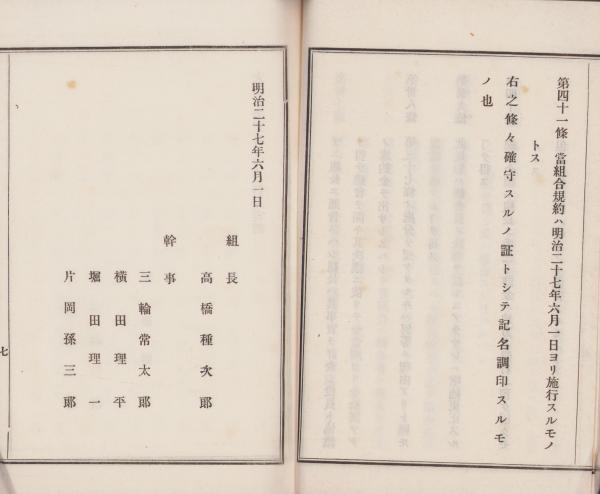 第四十一條　當組合規約ハ明治二十七年六月一日ヨリ施行スルモノ
トス
右之條々確守スルノ証トシテ記名調印スルモ
ノ也
明治二十七年六月一日
組長
高橋種次郎
幹事
三輪常太郎
横田理平
堀田理一
片岡孫三郎
七